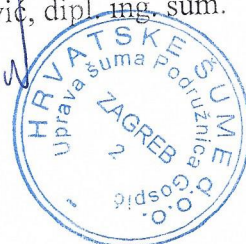 vić, dipl. ing. šum.
HRVATSKE ŠUME d.o.o.
Uprava šuma Podružnica Gospić
ZAGREB
2